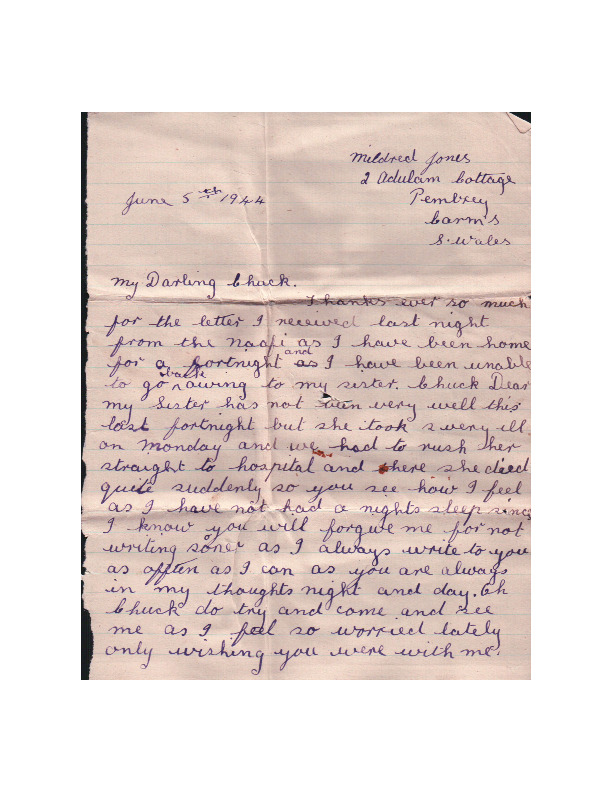 Mildred Jones
2 Adulam Cottage
June 5th 1944
Pembrey
Carms
S. Wales
My Darling Chuck.
Thanks ever so much
for the letter I received last night
from the Naafi as I have been home
for a fortnight and as I have been unable
to go back owing to my sister. Chuck Dear
my Sister has not been very well this
last fortnight but she took very ill
on Monday and we had to rush her
straight to hospital and there she died
quite suddenly so you see how I feel
as I have not had a nights sleep since
I know you will forgive me for not
writing soner as I always write to you
as offten as I can as you are always
in my thoughts night and day. Oh
Chuck do try and come and see
me as I feel so worried lately
only wishing you were with me.